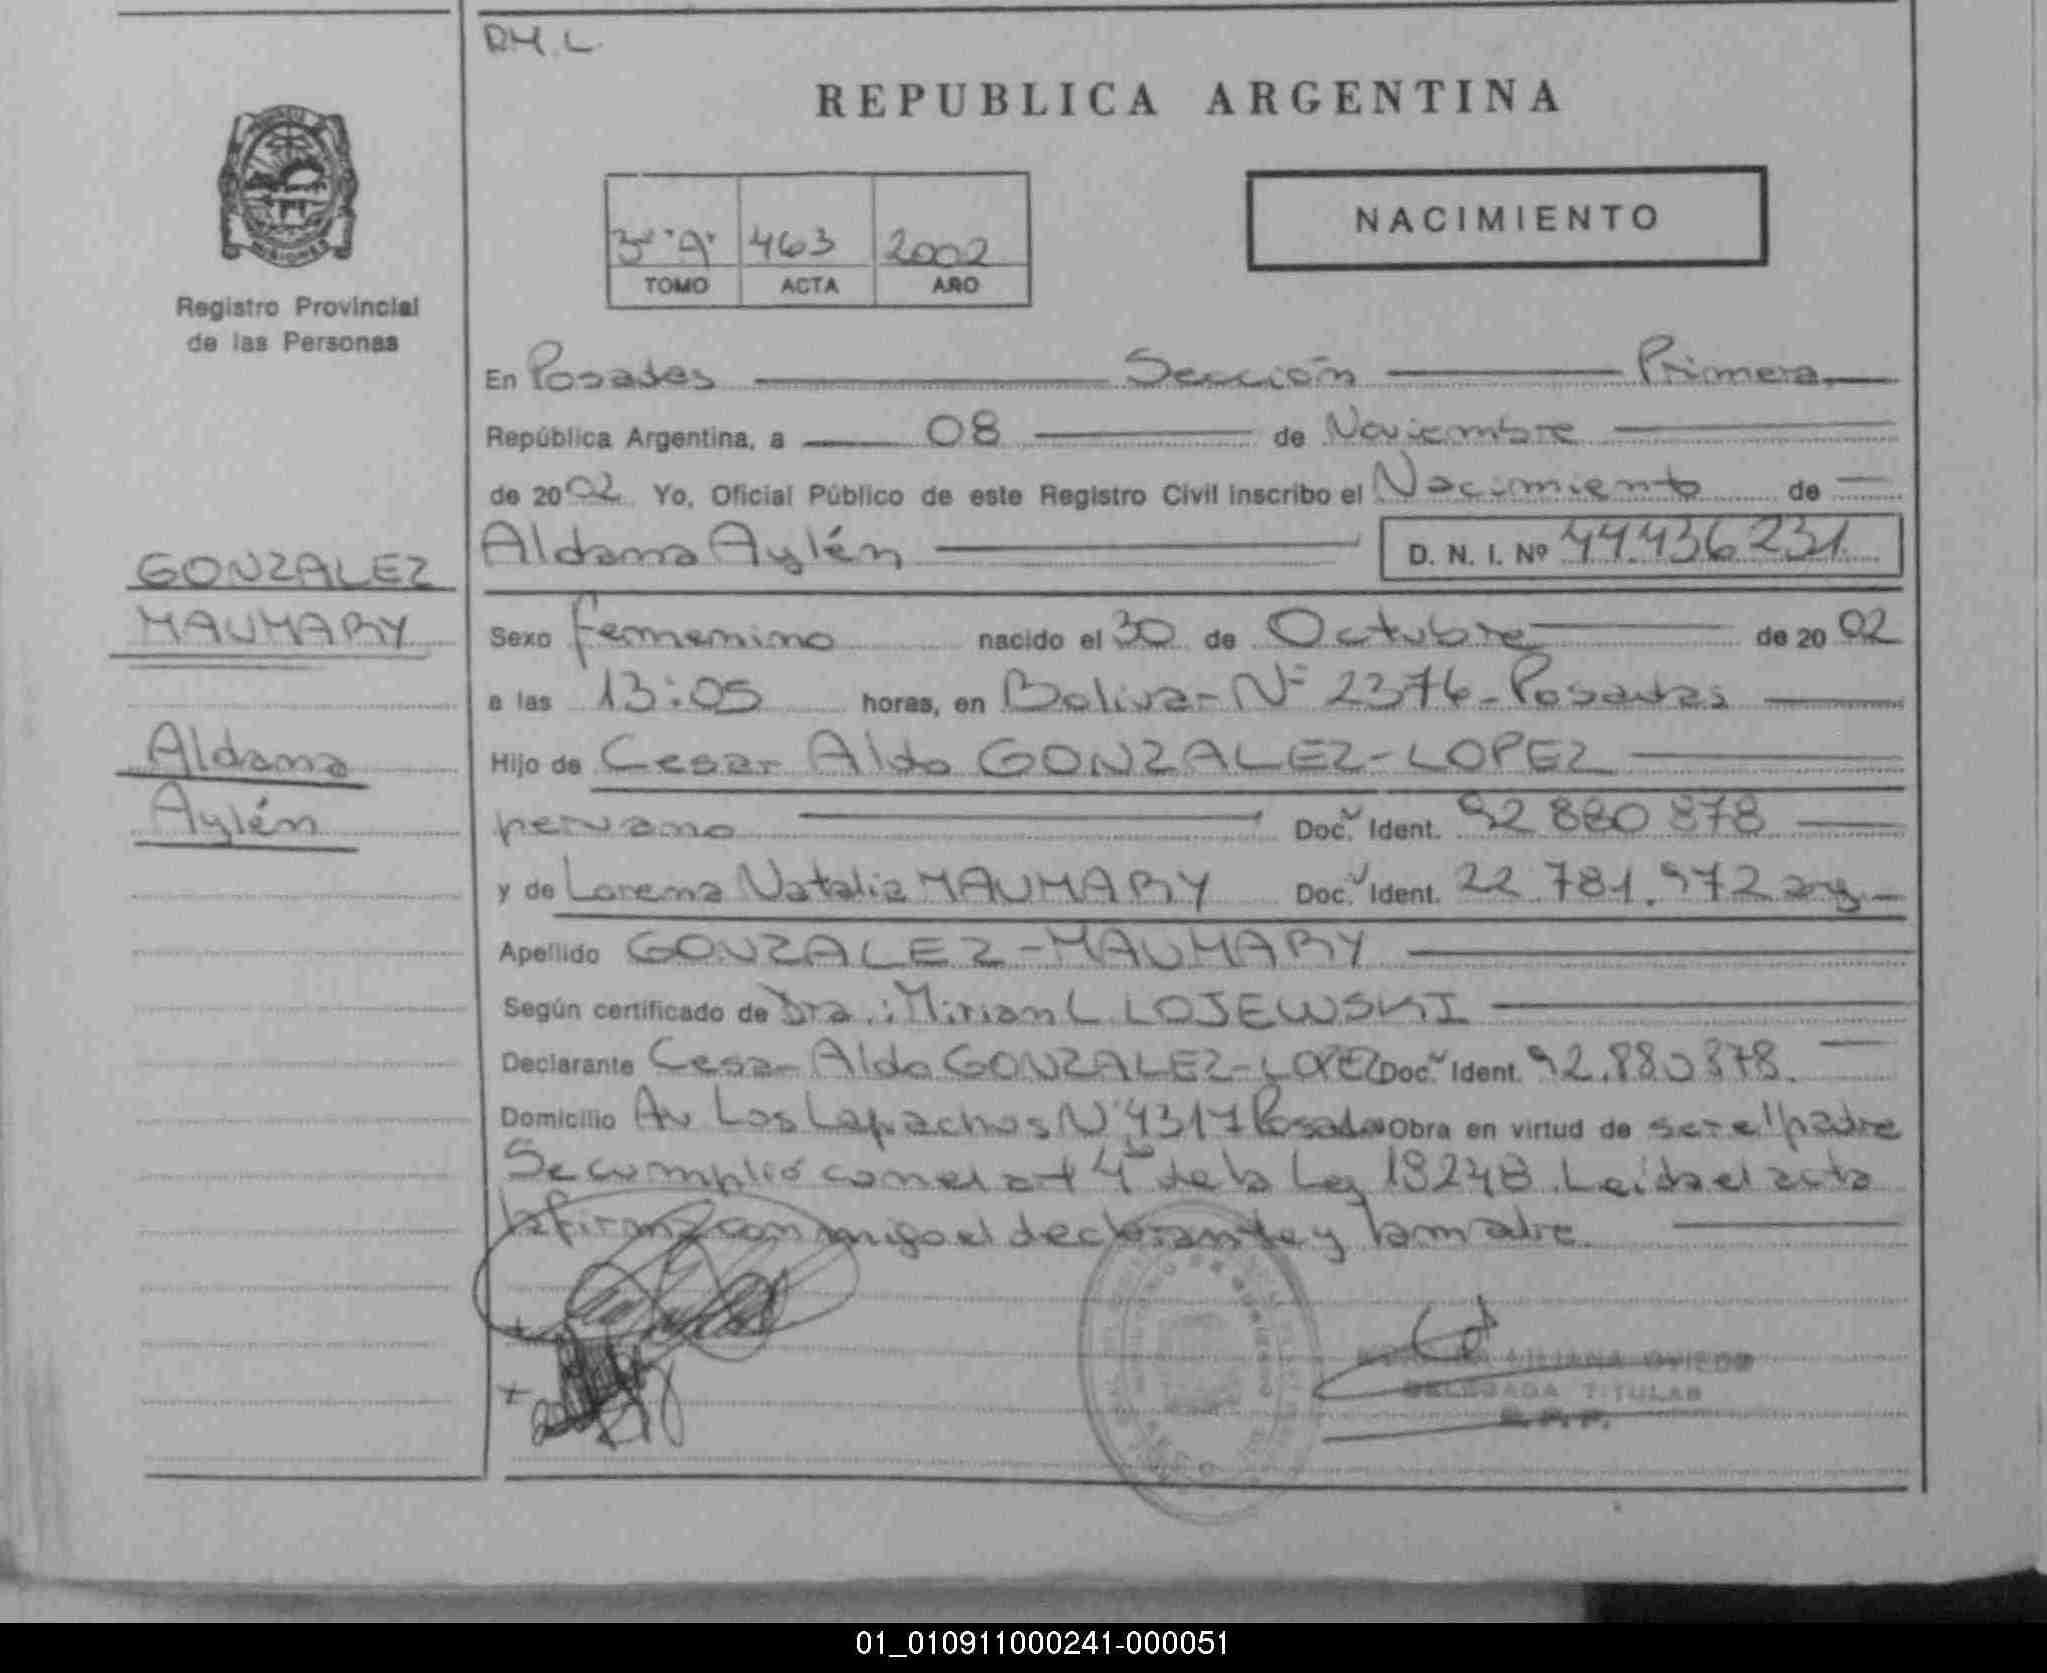 RM.L.
REPUBLICA ARGENTINA
3º "A" 463 2002
TOMO ACTA AÑO
NACIMIENTO
MISIONES
Registro Provincial
de las Personas
GONZALEZ
MAUMARY
Aldana
Aylén
En Posadas Sección Primera
República Argentina, a 08 de Noviembre
de 2002 Yo, Oficial Público de este Registro Civil inscribo el Nacimiento de
Aldana Aylén D. N. I. Nº 44.436231
Sexo femenino nacido el 30 de Octubre de 20 02
a las 13:05 horas, en Bolivar Nº 2376 - Posadas
Hijo de Cesar Aldo GONZALEZ-LOPEZ
peruano Doc. Ident. 92 880 878
y de Lorena Natalia MAUMARY Doc. Ident. 22.781.972 arg
Apellido GONZALEZ-MAUMARY
Según certificado de Dra.: Mirian L LOJEWSKI
Declarante Cesar Aldo GONZALEZ-LOPEZ Doc. Ident. 92.880878.
Domicilio Av Los Lapachos Nº 4317 Posadas Obra en virtud de ser el padre
Se cumplió con el art 4º de la Ley 18248. Leída el acta
la firma con migo el declarante y la madre.
LILIANA OVIEDO
DELEGADA TITULAR
R. P. P.
01_010911000241-000051